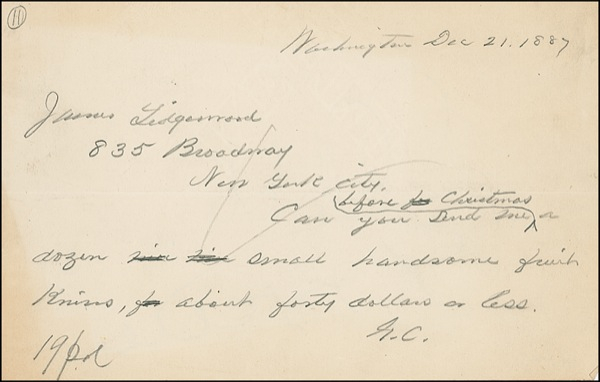 11
Washington Dec 21. 1887
James Lidgerwood
835 Broadway
New York City.
before Christmas
Can you send me a
dozen small handsome fruit
Knives, about forty dollars or less.
G.C.
19 pd